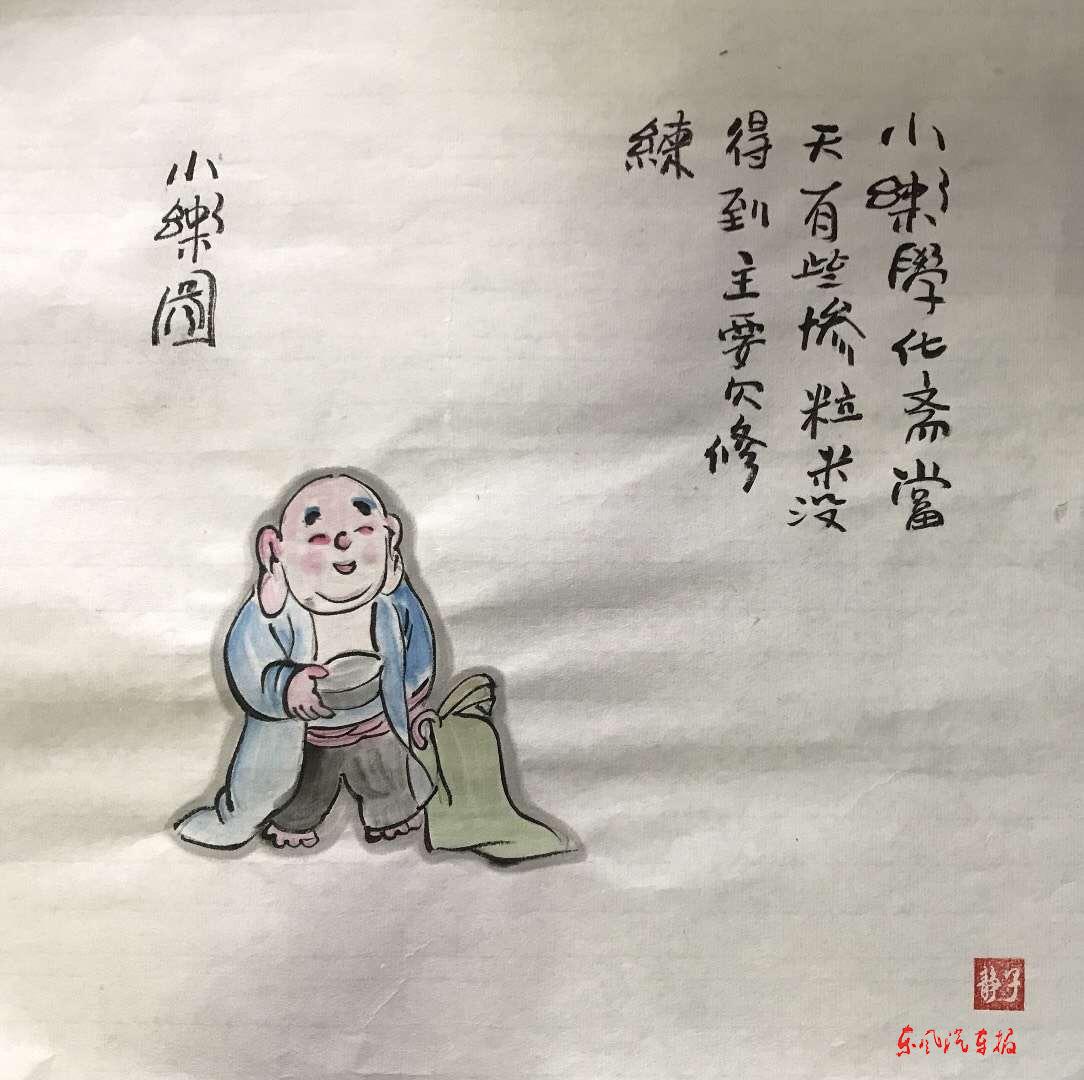 小樂學化斎當
天有些慘粒米没
得到主要欠修
練
小樂圖
静子
东风汽车报